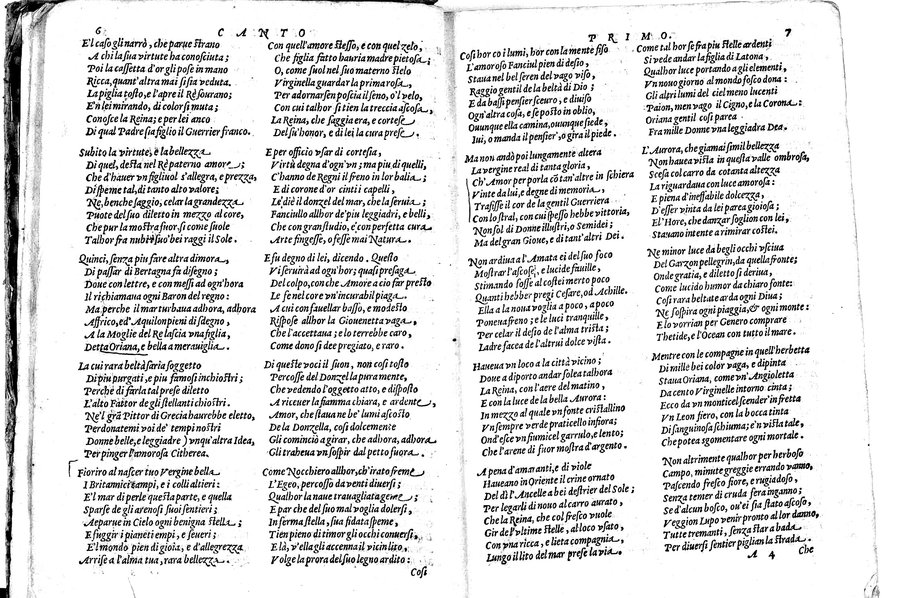 6
CANTO
E'l caso gli narrò, che parue strano
A chi la sua virtute ha conosciuta;
Poi la cassetta d'or gli pose in mano
Ricca, quant'altra mai si sia veduta.
La piglia tosto, e l'apre il Rè sourano;
E'n lei mirando, di color si muta;
Conosce la Reina; e per lei anco
Di qual Padre sia figlio il Guerrier franco.
Subito la virtute, e la bellezza
Di quel, desta nel Rè paterno amore;
Che d'hauer vn figliuol s'allegra, e prezza,
Di speme tal, di tanto alto valore;
Ne, benche saggio, celar la grandezza
Puote del suo diletto in mezzo al core,
Che pur la mostra fior. si come suole
Talhor fra nubi suo' bei raggi il Sole.
Quinci, senza piu fare altra dimora,
Di passar di Bertagna fa disegno;
Doue con lettre, e con messi ad ogn'hora
Il richiamaua ogni Baron del regno:
Ma perche il mar turbaua adhora, adhora
Affrico, ed Aquilon pieni di sdegno,
A la Moglie del Re lascia vna figlia,
Detta Oriana, e bella a merauiglia.
La cui rara beltà saria soggetto
Di piu purgati, e piu famosi inchiostri;
Perche di farla tal prese diletto
L'alto Fattor de gli stellanti chiostri.
Ne'l grã Pittor di Grecia haurebbe eletto,
Perdonatemi voi de' tempi nostri
Donne belle, e leggiadre) vnqu'altra Idea,
Per pinger l'amorosa Citherea.
Fioriro al nascer tuo Vergine bella
I Britannici campi, e i colli altieri:
E'l mar di perle questa parte, e quella
Sparse de gli arenosi suoi sentieri;
Aeparue in Cielo ogni benigna stella;
E fuggir i pianeti empi, e seueri;
E'l mondo pien di gioia, e d'allegrezza
Arrise a l'alma tua, rara bellezza.
Con quell'amore stesso, e con quel zelo,
Che figlia fatto hauria madre pietosa;
O, come suol nel suo materno stelo
Virginella guardar la prima rosa,
Per adornarsen poscia il seno, o'l velo,
Con cui talhor si tien la treccia ascosa,
La Reina, che saggia era, e cortese
Del su' honor, e di lei la cura prese.
E per officio vsar di cortesia,
Virtù degna d'ogn'vn; ma piu di quelli,
C'hanno de Regni il freno in lor balia;
E di corone d'or cinti i capelli,
Le diè il donzel del mar, che la seruia;
Fanciullo allhor de' piu leggiadri, e belli,
Che con gran studio, e con perfetta cura
Arte fingesse, o fesse mai Natura.
E fu degno di lei, dicendo. Questo
Vi seruirà ad ogn'hor; quasi presaga
Del colpo, con che Amore a cio far presto
Le fe nel core vn'incurabil piaga.
A cui con fauellar basso, e modesto
Rispose allhor la Giouenetta vaga,
Che l'accettaua; e lo terrebbe caro,
Come dono si dee pregiato, e raro.
Di queste voci il suon, non cosi tosto
Percosse del Donzel la pura mente,
Che vedendo l'oggetto alto, e disposto
A riceuer la fiamma chiara, e ardente,
Amor, che staua ne be' lumi ascosto
De la Donzella, cosi dolcemente
Gli cominciò a girar, che adhora, adhora
Gli traheua vn sospir dal petto fuora.
Come Nocchiero allhor, ch'irato freme
L'Egeo, percosso da venti diuersi;
Qualhor la naue trauagliata geme;
E par che del suo mal voglia dolersi,
In ferma stella, sua fidata speme,
Tien pieno di timor gli occhi conuersi,
E là, v'ella gli accenna il vicin lito,
Volge la prora del suo legno ardito:
Cosi
PRIMO.
7
Cosi hor co i lumi, hor con la mente fiso
L'amoroso Fanciul pien di desio,
Staua nel bel seren del vago viso,
Raggio gentil de la beltà di Dio;
E da bassi pensier sceuro, e diuiso
Ogn'altra cosa, e se posto in oblio,
Ouunque ella camina, ouunque siede,
Iui, o manda il pensier', o gira il piede.
Ma non andò poi lungamente altera
La vergine real di tanta gloria,
Ch'Amor per porla cõ tan'altre in schiera
Vinte da lui, e degne di memoria,
Trafisse il cor de la gentil Guerriera
Con lo stral, con cui spesso hebbe vittoria,
Non sol di Donne illustri, o Semidei;
Ma del gran Gioue, e di tant'altri Dei.
Non ardiua a l'Amata ei del suo foco
Mostrar l'ascose, e lucide fauille,
Stimando fosse al costei merto poco
Quanti hebber pregi Cesare, od Achille.
Ella a la noua voglia a poco, a poco
Poneua freno; e le luci tranquille,
Per celar il desio de l'alma trista;
Ladre facea de l'altrui dolce vista.
Haueua vn loco a la città vicino;
Doue a diporto andar solea talhora
La Reina, con l'aere del matino,
E con la luce de la bella Aurora:
In mezzo al quale vn fonte cristallino
Vn sempre verde praticello infiora;
Ond'esce vn fiumicel garrulo, e lento;
Che l'arene di fuor mostra d'argento.
A pena d'amaranti, e di viole
Haueano in Oriente il crine ornato
Del dì l'Ancelle a bei destrier del Sole;
Per legarli di nouo al carro aurato,
Che la Reina, che col fresco vuole
Gir de l'vltime stelle, al loco vsato,
Con vna ricca, e lieta compagnia,
Lungo il lito del mar prese la via.
Come tal hor se fra piu stelle ardenti
Si vede andar la figlia di Latona,
Qualhor luce portando a gli elementi,
Vn nouo giorno al mondo fosco dona:
Gli altri lumi del ciel meno lucenti
Paion, men vago il Cigno, e la Corona:
Oriana gentil cosi parea
Fra mille Donne vna leggiadra Dea.
L'Aurora, che giamai simil bellezza
Non hauea vista in questa valle ombrosa,
Scesa col carro da cotanta altezza
La riguardaua con luce amorosa:
E piena d'ineffabile dolcezza,
D'esser vinta da lei parea gioiosa;
E l'Hore, che danzar soglion con lei,
Stauano intente a rimirar costei.
Ne minor luce da begli occhi vsciua
Del Garzon pellegrin, da quella fronte;
Onde gratia, e diletto si deriua,
Come lucido humor da chiaro fonte:
Cosi rara beltate arda ogni Diua;
Ne sospira ogni piaggia, & ogni monte:
E lo vorrian per Genero comprare
Thetide, e l'Ocean con tutto il mare.
Mentre con le compagne in quell'herbetta
Di mille bei color vaga, e dipinta
Staua Oriana, come vn'Angioletta
Da cento Virginelle intorno cinta;
Ecco da vn monticel scender'in fretta
Vn Leon fiero, con la bocca tinta
Di sanguinosa schiuma; e'n vista tale,
Che potea sgomentare ogni mortale.
Non altrimente qualhor per herboso
Campo, minute greggie errando vanno,
Pascendo fresco fiore, e rugiadoso,
Senza temer di cruda fera inganno;
Se d'alcun bosco, ou'ei sia stato ascoso,
Veggion Lupo venir pronto al lor danno,
Tutte tremanti, senza star a bada
Per diuersi sentier piglian la strada.
A 4
Che